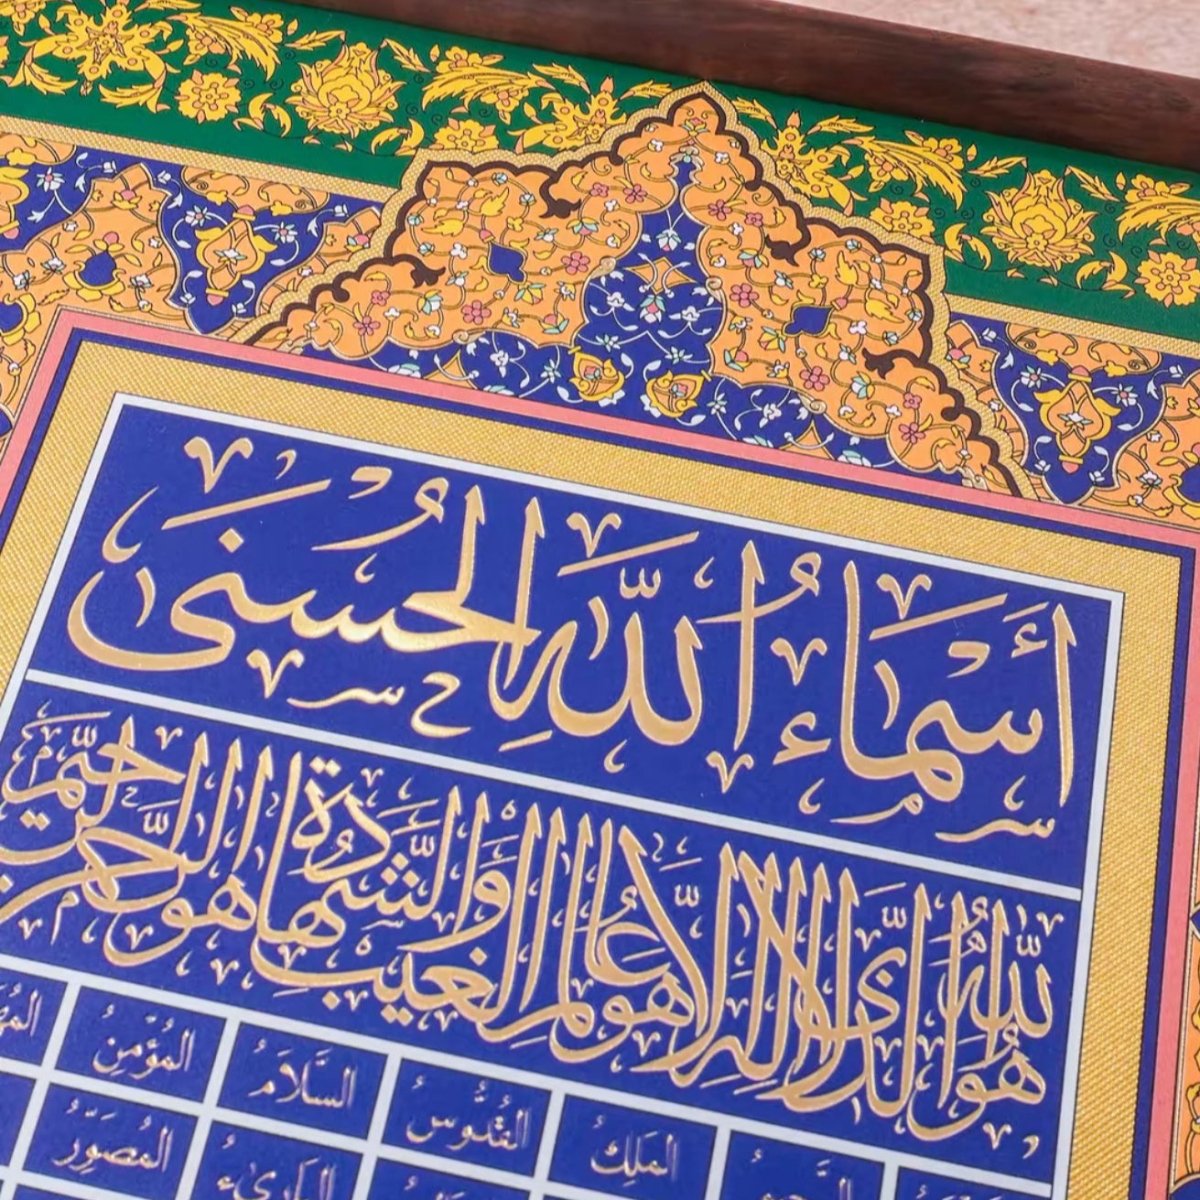 أَسْمَاءُ اللَّهِ الْحُسْنَى
هُوَ اللَّهُ الَّذِي لَا إِلَهَ إِلَّا هُوَ عَالِمُ الْغَيْبِ وَالشَّهَادَةِ هُوَ الرَّحْمَنُ الرَّحِيمُ
المَلِكُ القُدُّوسُ السَّلَامُ المُؤْمِنُ
البَارِئُ المُصَوِّرُ